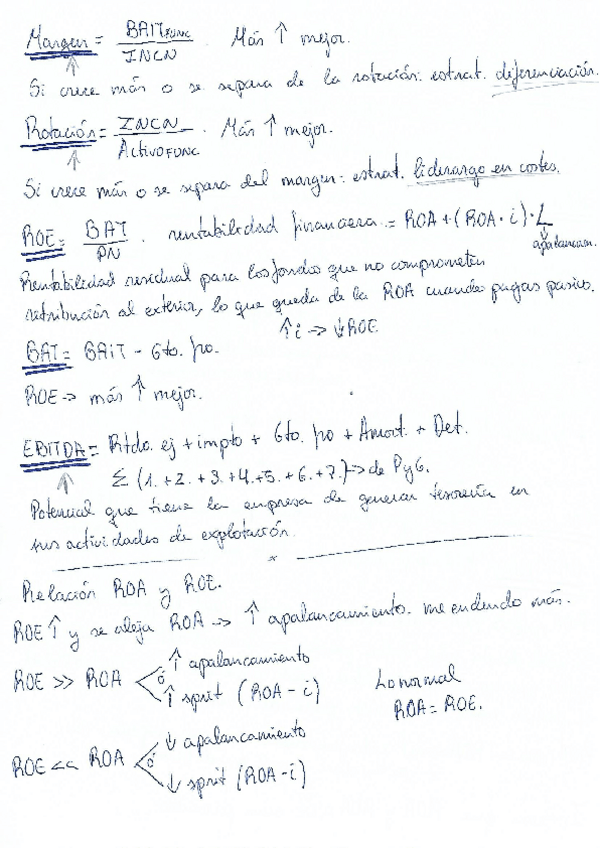 Margen = BAIT FUNC / INCN Más ↑ mejor.
Si crece más o se separa de la rotación: estrat. diferenciación.
Rotación = INCN / Activo FUNC . Más ↑ mejor.
Si crece más o se separa del margen: estrat. liderazgo en costes.
ROE = BAT / PN . rentabilidad financiera = ROA + (ROA · i) · L
apalancam.
Rentabilidad residual para los fondos que no comprometen
retribución al exterior, lo que queda de la ROA cuando pagas pasivo.
↑ i → ↓ ROE
BAT = BAIT - Gto. fro.
ROE → más ↑ mejor.
EBITDA = Rtdo. ej + impto + Gto. fro + Amort. + Det.
Σ (1. + 2. + 3. + 4. + 5. + 6. + 7.) → de PyG.
Potencial que tiene la empresa de generar tesorería en
sus actividades de explotación.
Relación ROA y ROE.
ROE ↑ y se aleja ROA → ↑ apalancamiento. me endeudo más.
ROE >> ROA < ↑ apalancamiento
ó
↑ sprit (ROA - i)
Lo normal
ROA = ROE.
ROE << ROA < ↓ apalancamiento
ó
↓ sprit (ROA - i)